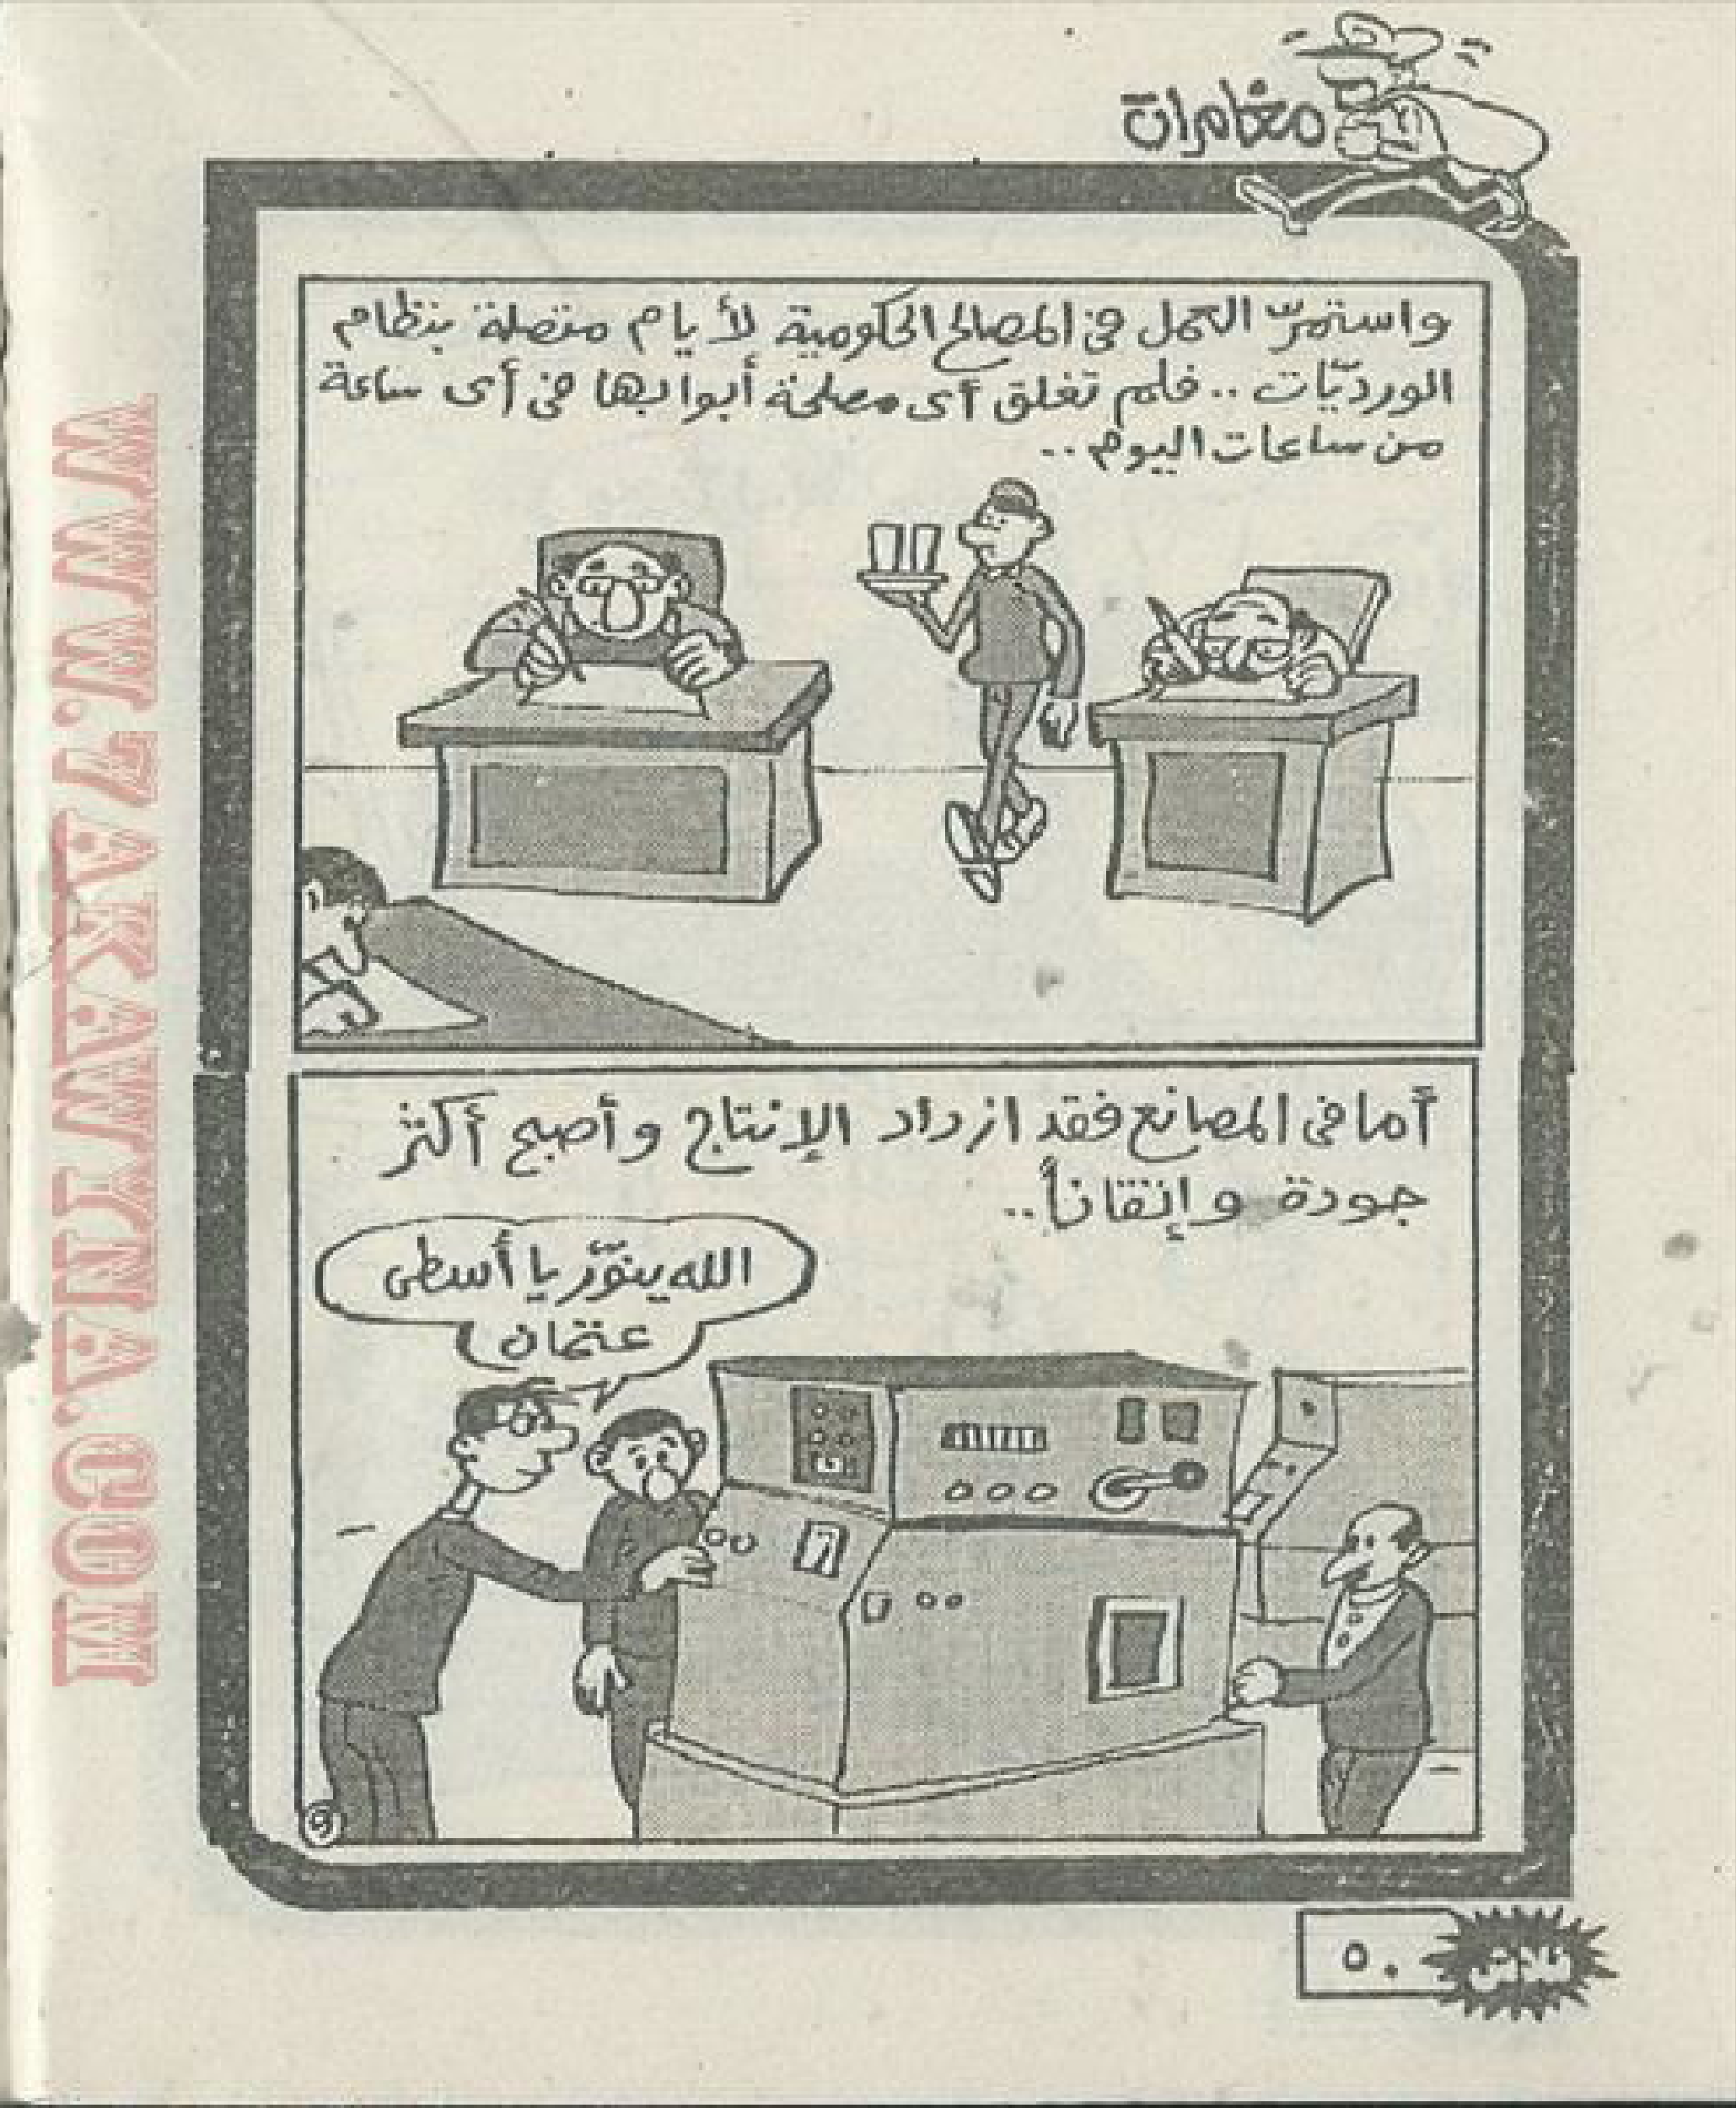 مغامرات
واستمرّ العمل فى المصالح الحكومية لأيام متصلة بنظام
الورديّات .. فلم تغلق أى مصلحة أبوابها فى أى ساعة
من ساعات اليوم ..
أما فى المصانع فقد ازداد الإنتاج وأصبح أكثر
جودة وإتقاناً ..
الله ينوّر يا أسطى
عتمان
و
فلاش
٥٠
WWW.7AKAWTINA.COM